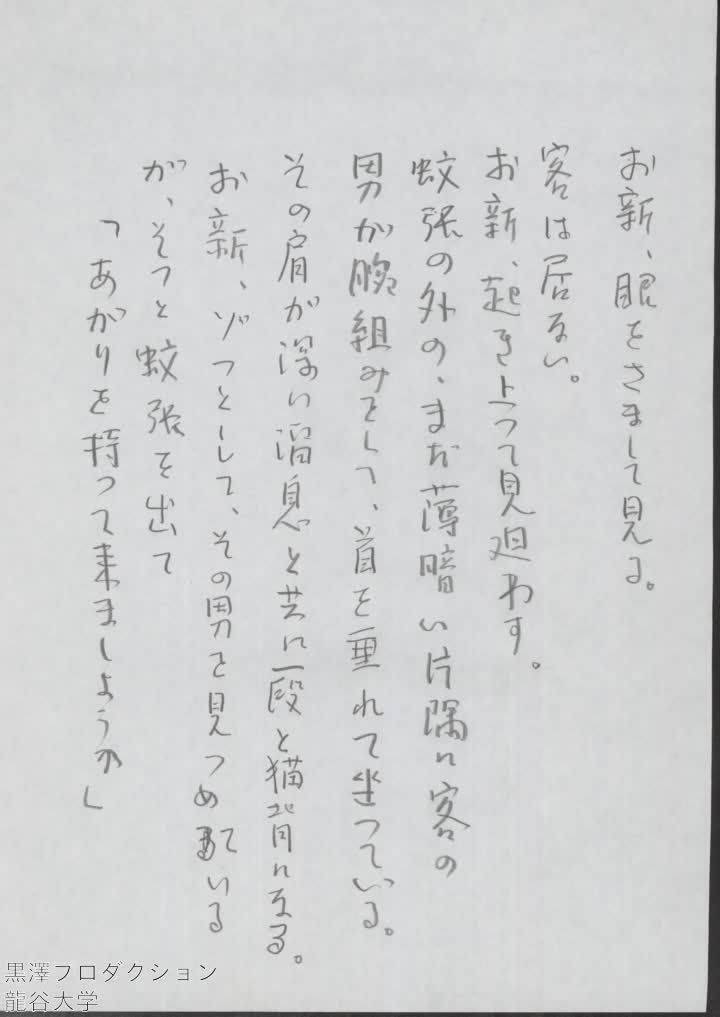 お新、眼をさまして見る。
客は居ない。
お新、起き上つて見廻わす。
蚊張の外の、まだ薄暗い片隅に客の
男が腕組みをして、首を垂れて坐つている。
その肩が深い溜息と共に一段と猫背になる。
お新、ゾッとして、その男を見つめている
が、そつと蚊張を出て
「あがりを持つて来ましようか」
黒澤プロダクション
龍谷大学